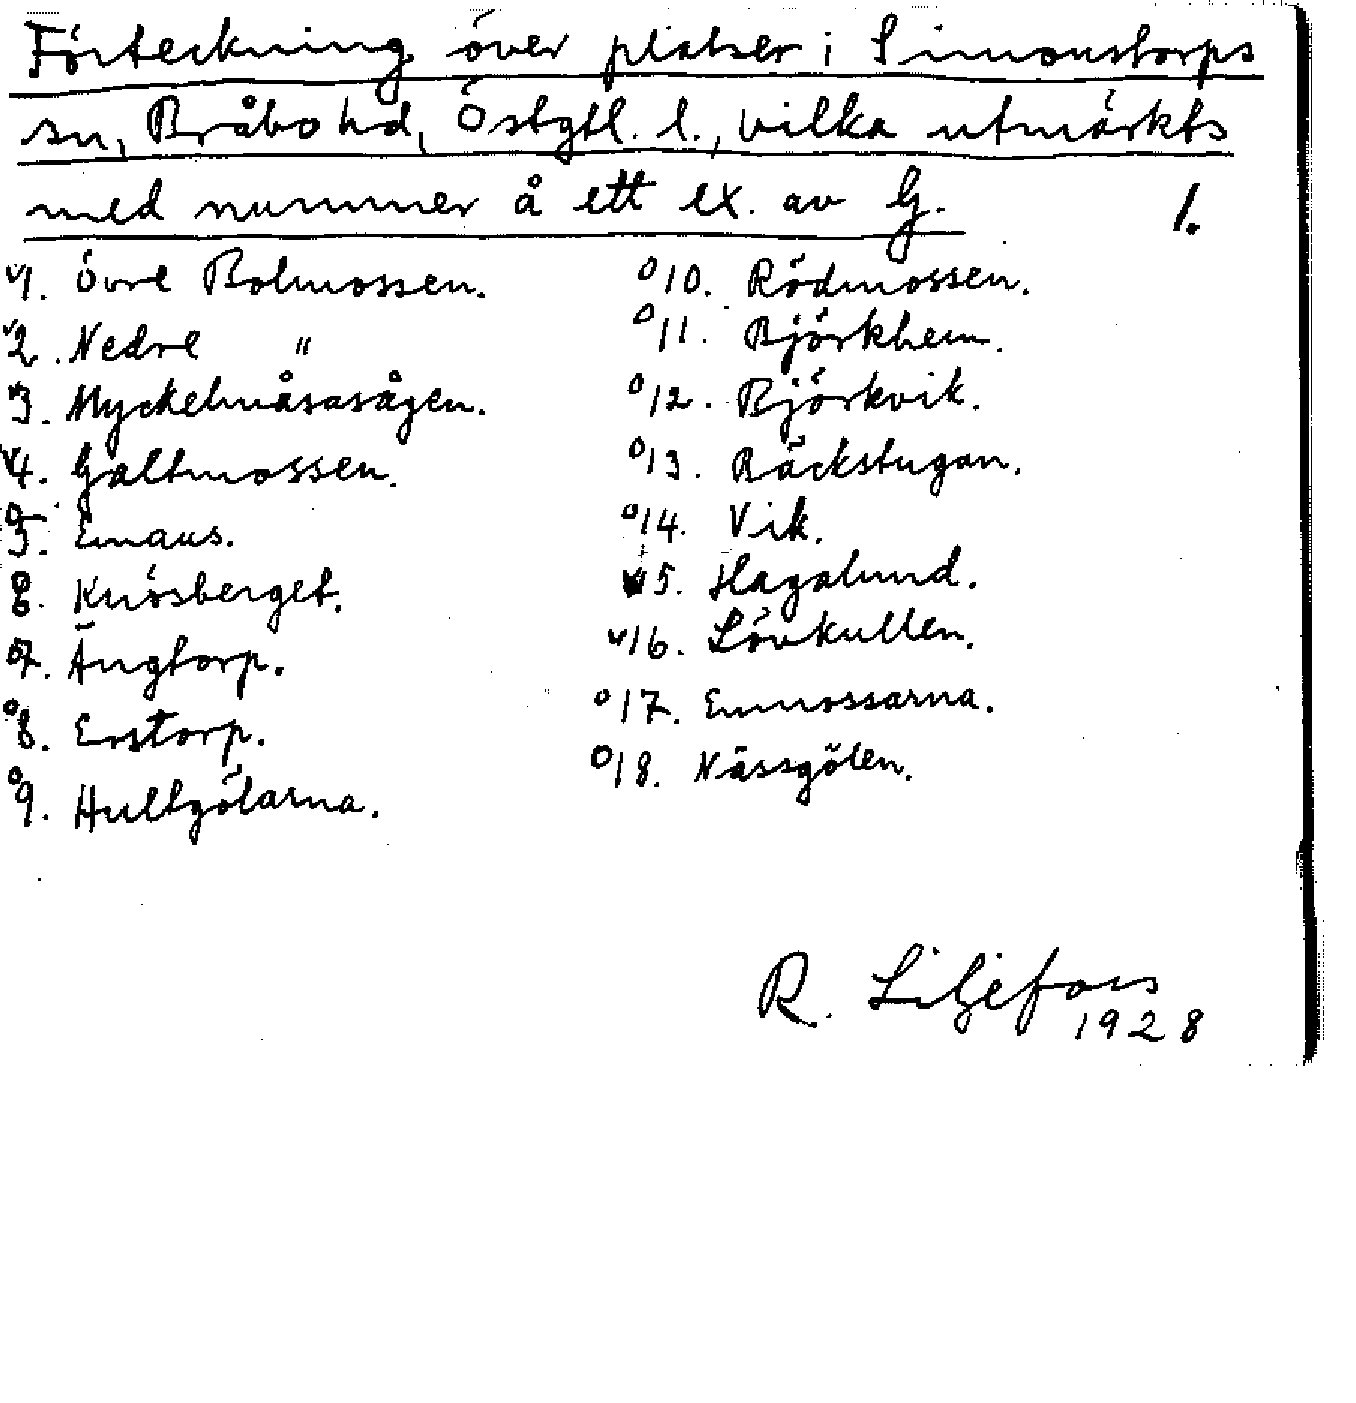 Förteckning över platser i Simonstorps
sn, Bråbo hd, Östgtl. l., vilka utmärkts
med nummer å ett ex. av G. 1.
v1. Övre Bolmossen.
v2. Nedre "
v3. Myckelmåsasågen.
v4. Galtmossen.
o5. Emaus.
o6. Knösberget.
o7. Ängtorp.
o8. Enstorp.
o9. Hultgölarna.
o10. Rödmossen.
o11. Björkhem.
o12. Björkvik.
o13. Bäckstugan.
o14. Vik.
v15. Hagalund.
v16. Lövkullen.
o17. Emmossarna.
o18. Nässgölen.
R. Liljefors
1928